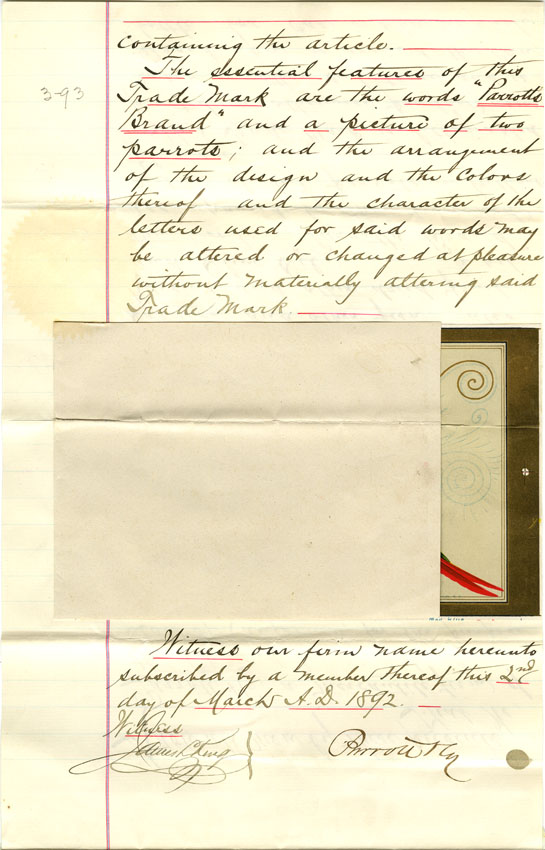 containing the article.
The essential features of this
3-93
Trade Mark are the words "Parrott's
Brand" and a picture of two
parrots; and the arrangement
of the design and the colors
thereof and the character of the
letters used for said words may
be altered or changed at pleasure
without materially altering said
Trade Mark.
Witness our firm name hereunto
subscribed by a member thereof this 2nd
day of March A.D. 1892.
Witness
Parrott & Co